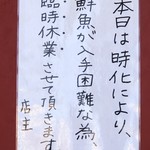 本日は時化により、
鮮魚が入手困難な為、
臨時休業させて頂きます
店主